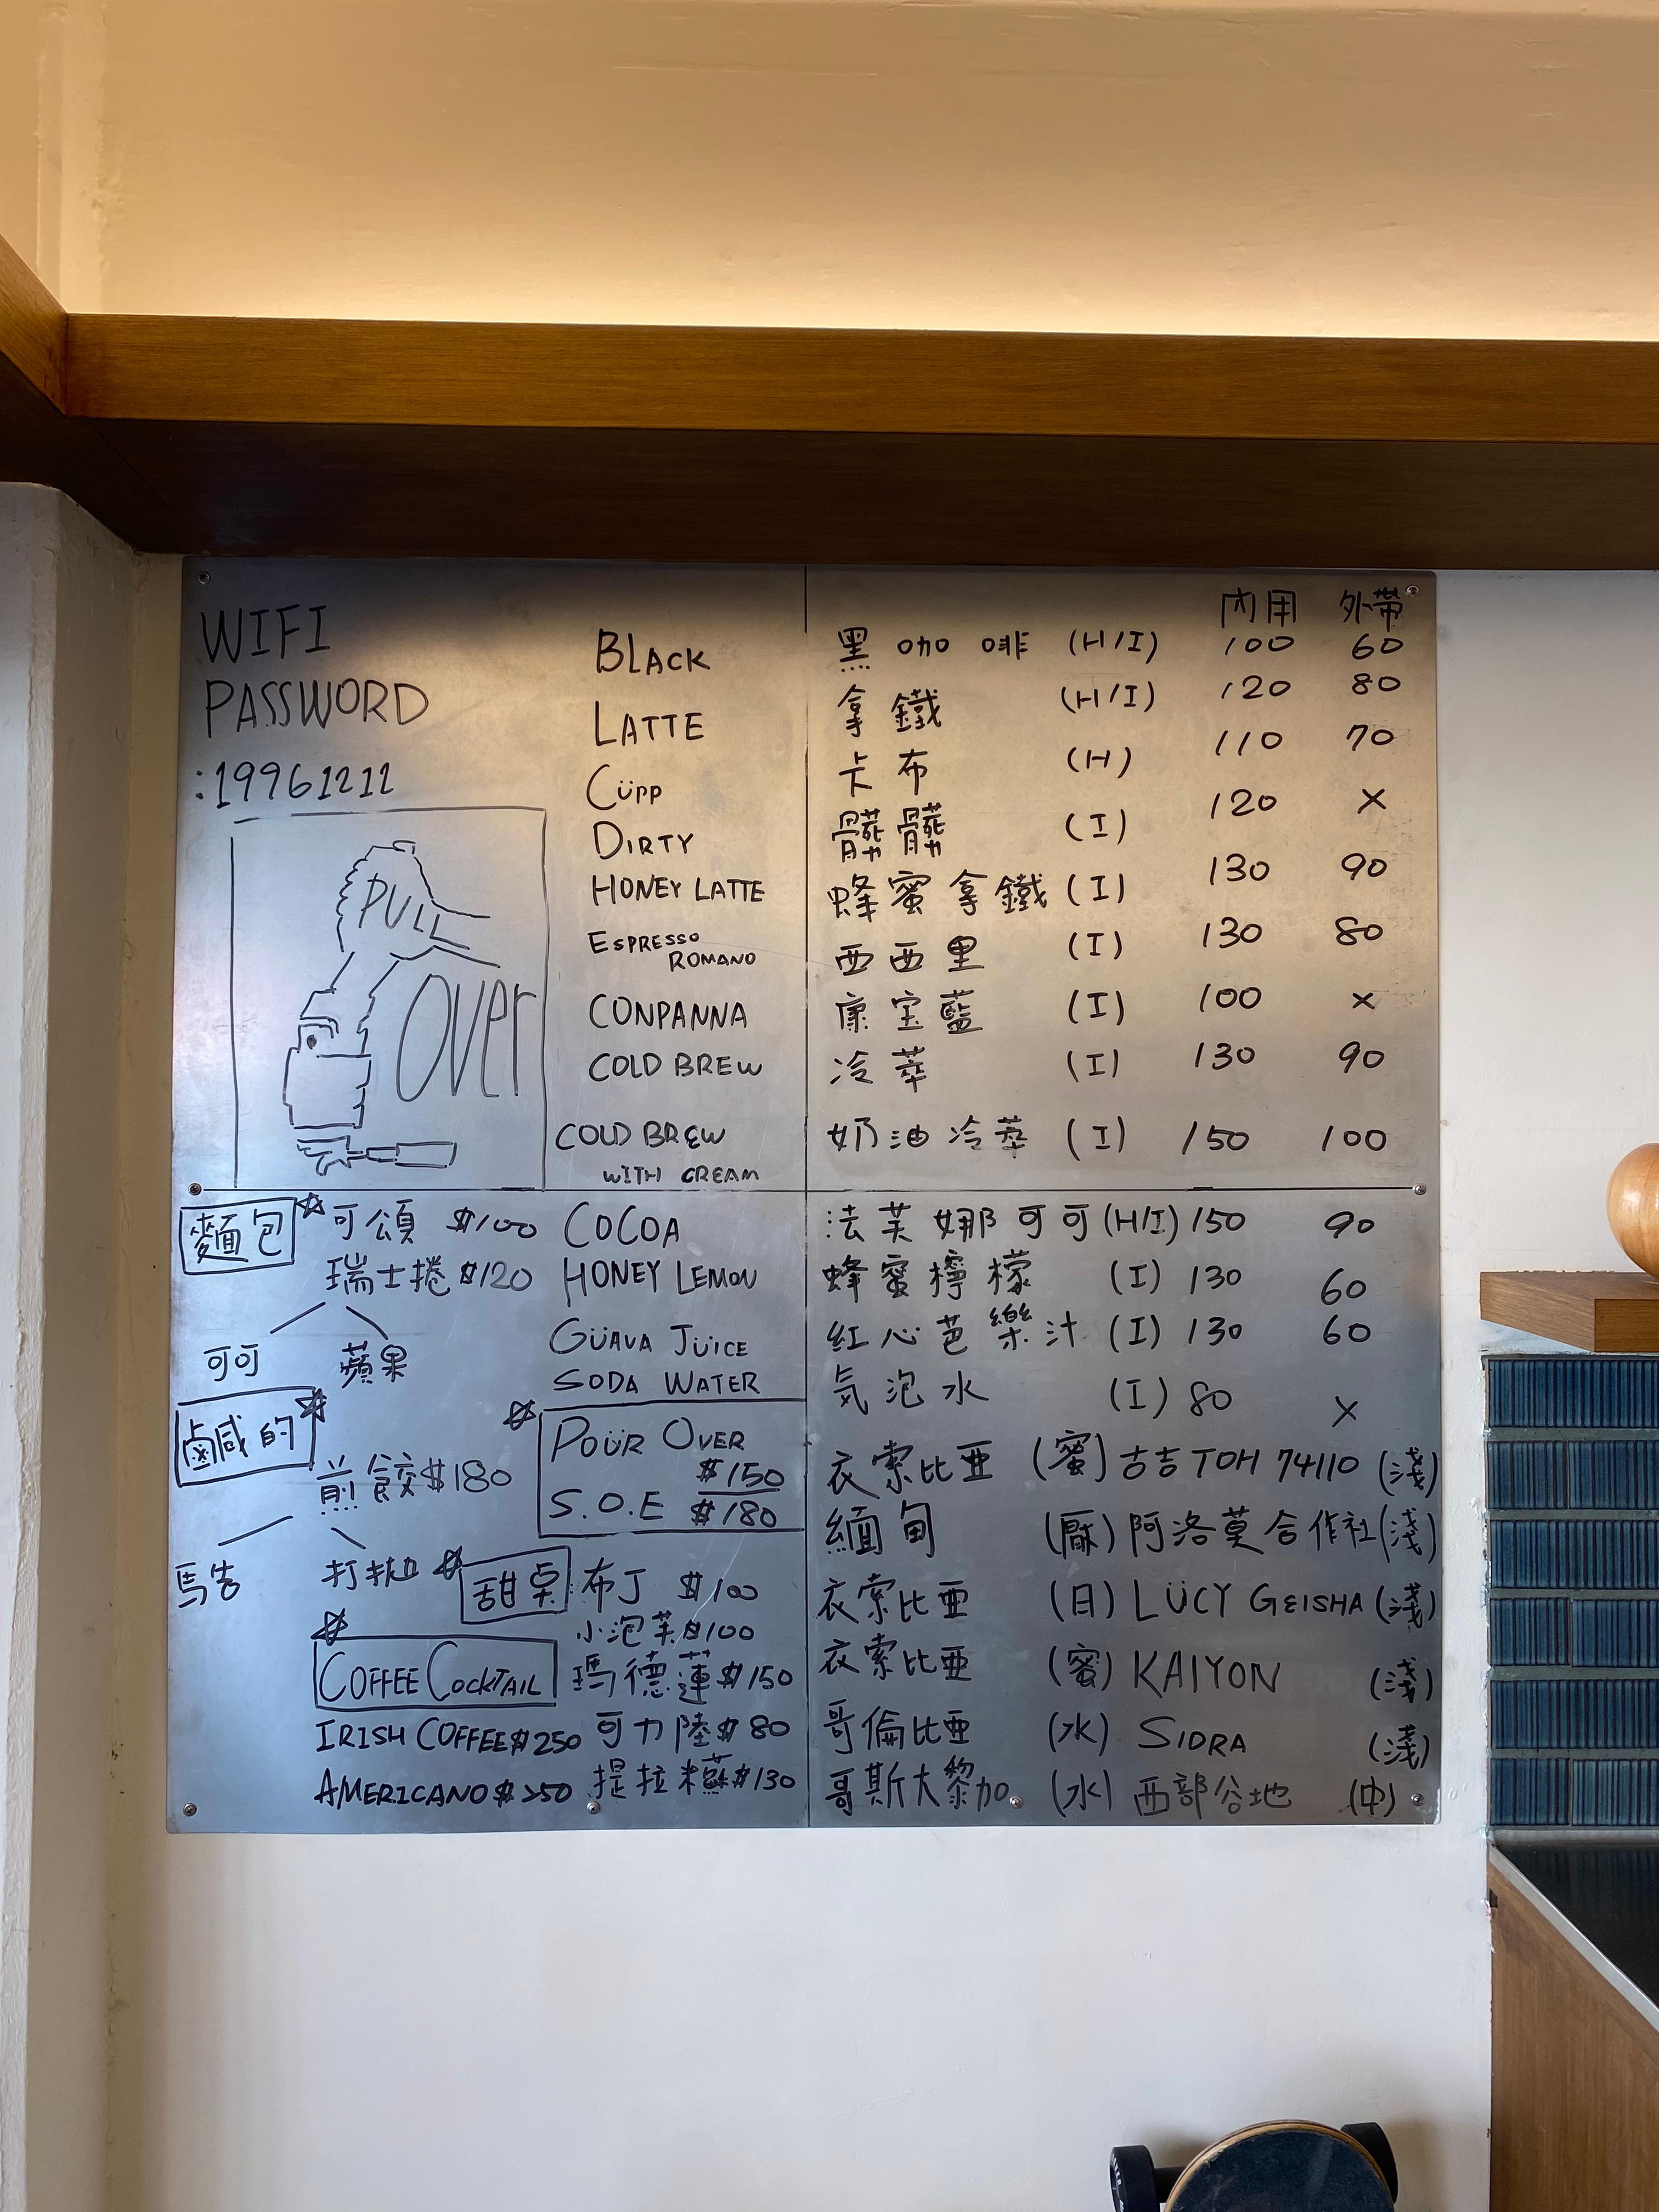 WIFI
PASSWORD
:19961212
PULL
OVER
內用 外帶
BLACK 黑咖啡 (H/I) 100 60
LATTE 拿鐵 (H/I) 120 80
CÜPP 卡布 (H) 110 70
DIRTY 髒髒 (I) 120 X
HONEY LATTE 蜂蜜拿鐵 (I) 130 90
ESPRESSO
ROMANO 西西里 (I) 130 80
CONPANNA 康宝藍 (I) 100 X
COLD BREW 冷萃 (I) 130 90
COLD BREW
WITH CREAM 奶油冷萃 (I) 150 100
麵包 可頌 $100
瑞士捲 $120
可可 蘋果
鹹的
煎餃 $180
馬告 打拋
COCOA 法芙娜可可 (H/I) 150 90
HONEY LEMON 蜂蜜檸檬 (I) 130 60
GÜAVA JÜICE 紅心芭樂汁 (I) 130 60
SODA WATER 気泡水 (I) 80 X
POÜR OVER
$150
S.O.E $180
甜桌:布丁 $100
小泡芙 $100
瑪德蓮 $150
可力陸 $80
提拉米蘇 $130
COFFEE COCKTAIL
IRISH COFFEE $250
AMERICANO $250
衣索比亜 (蜜) 古吉 TOH 74110 (淺)
緬甸 (厭) 阿洛莫合作社 (淺)
衣索比亜 (日) LÜCY GEISHA (淺)
衣索比亜 (蜜) KAIYON (淺)
哥倫比亜 (水) SIDRA (淺)
哥斯大黎加 (水) 西部谷地 (中)